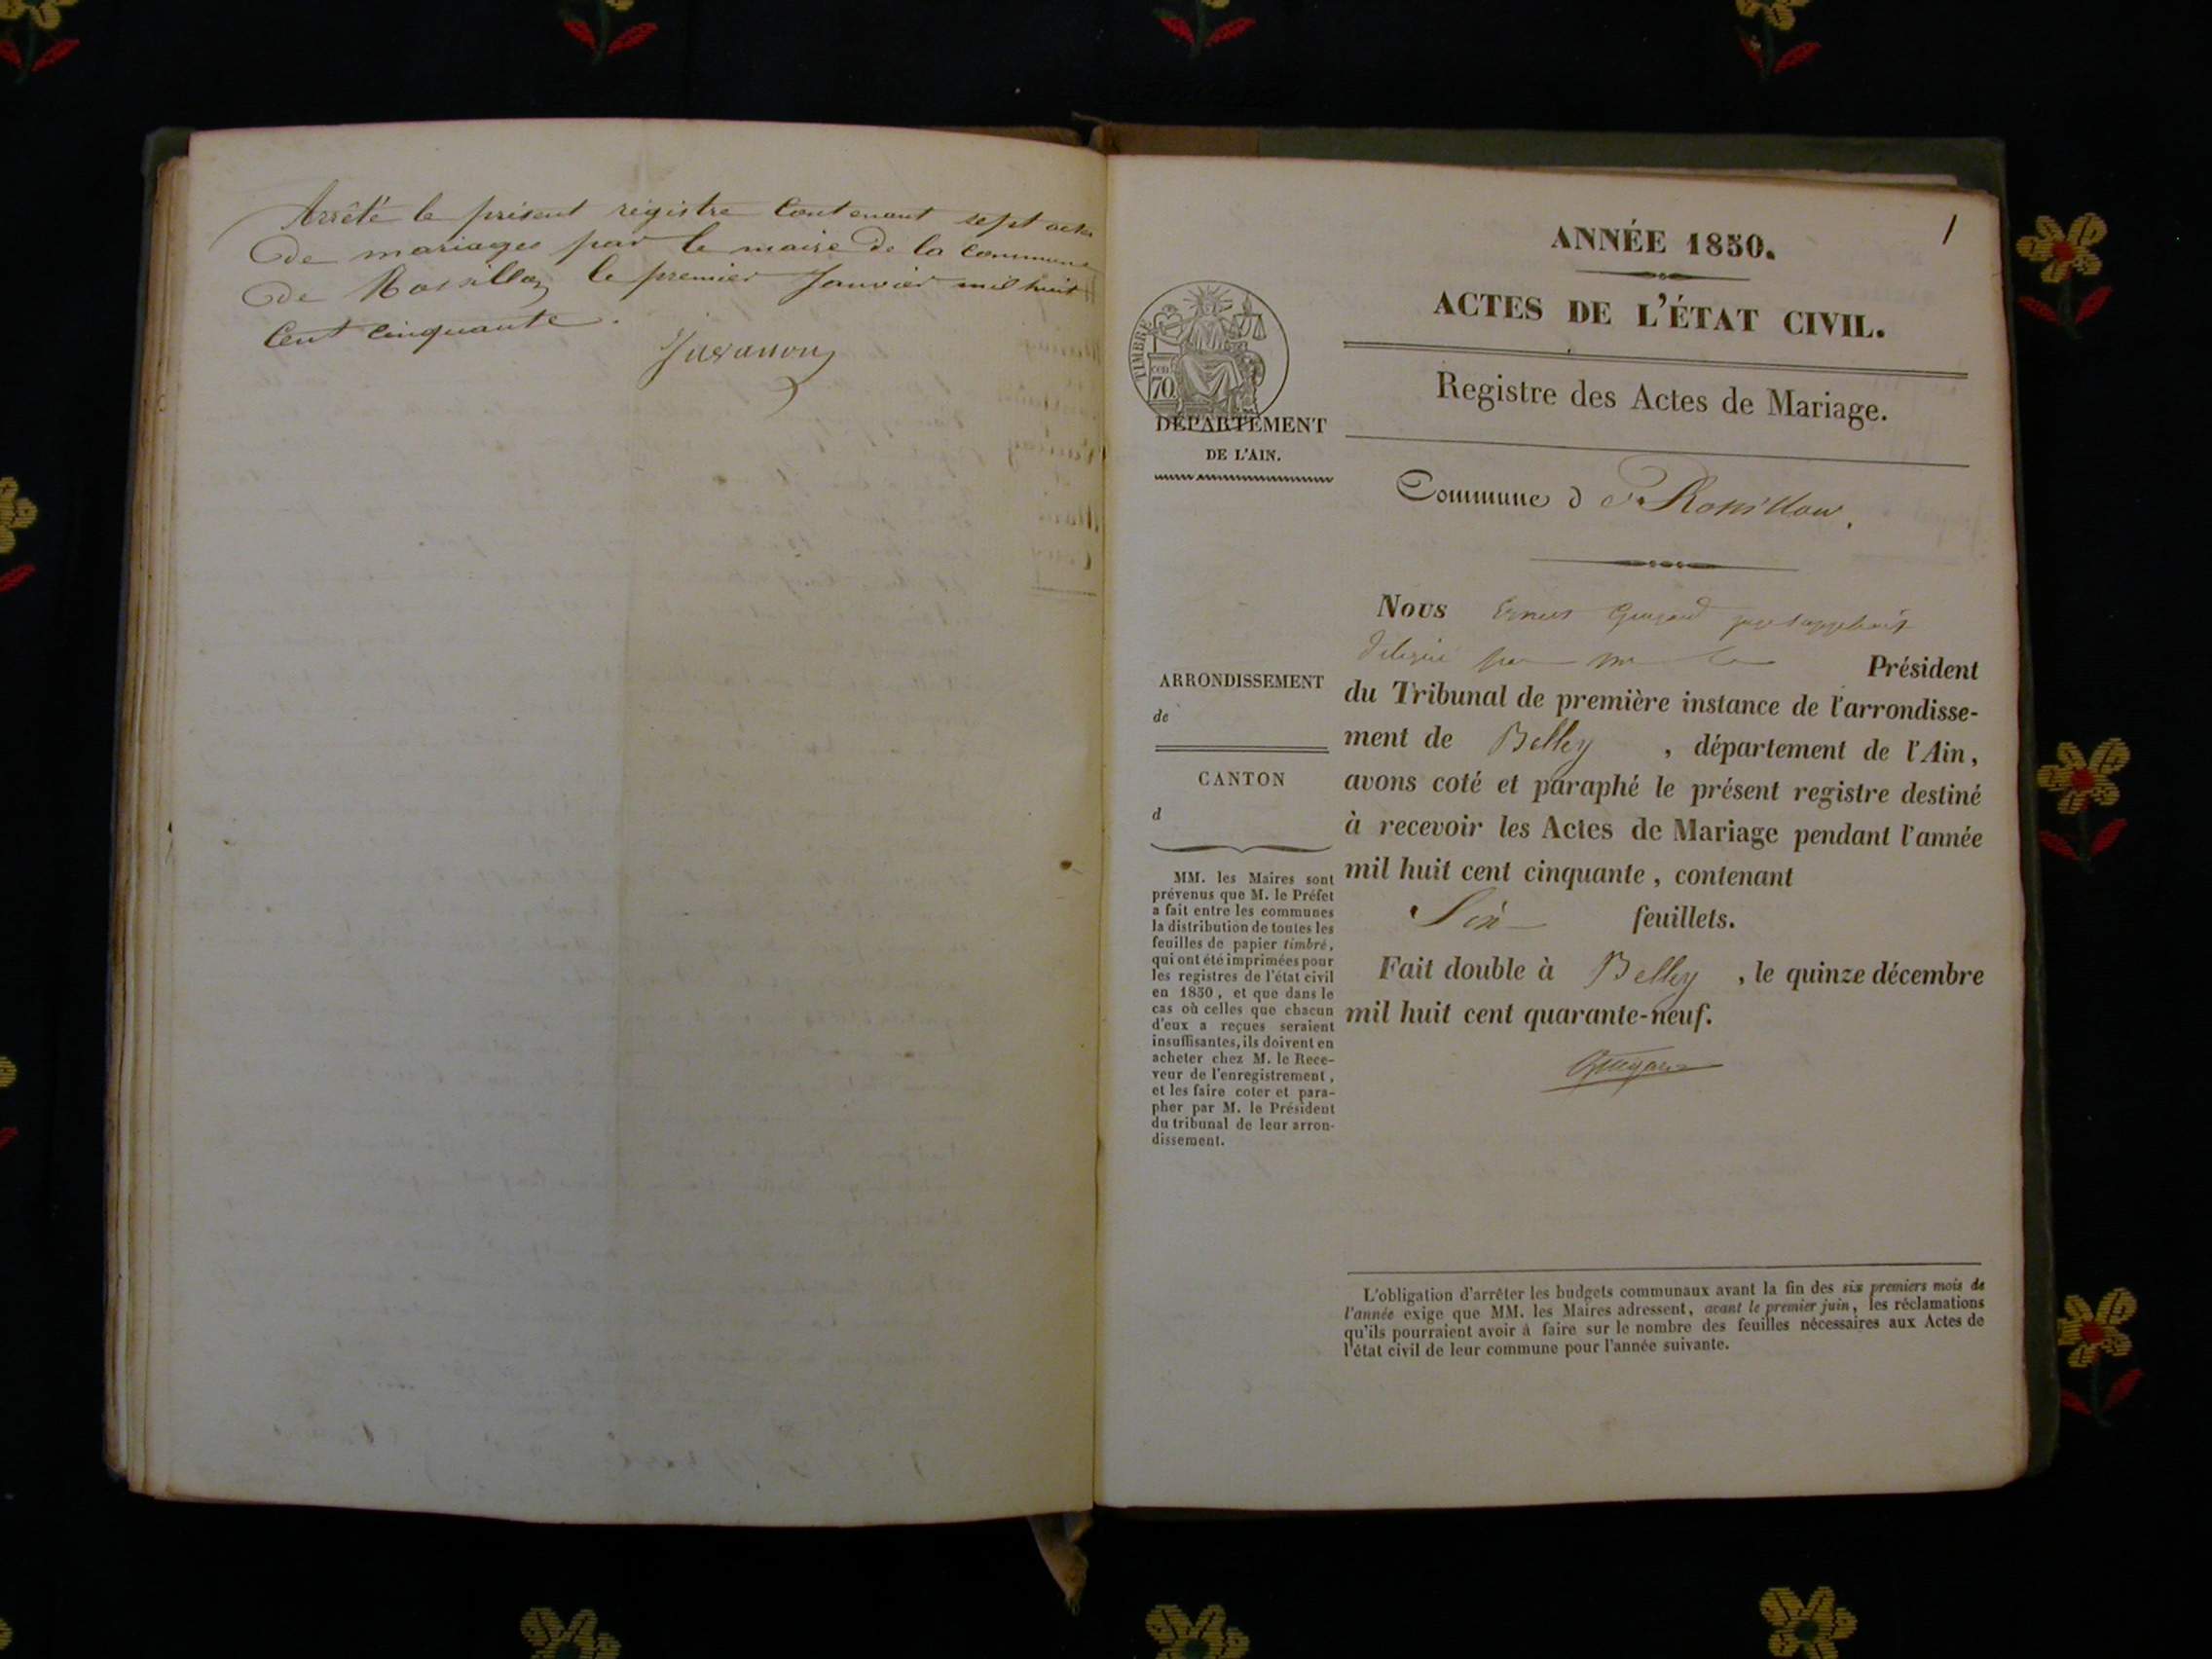 Arrêté le présent régistre Contenant sept actes
de mariages par le maire de la Commune
de Rossillon le premier Janvier mil huit
Cent cinquante.
1
ANNÉE 1850.
ACTES DE L'ÉTAT CIVIL.
Registre des Actes de Mariage.
TIMBRE
70
DÉPARTEMENT
DE L'AIN.
Commune d e Rossillon.
ARRONDISSEMENT
de
CANTON
d
MM. les Maires sont
prévenus que M. le Préfet
a fait entre les communes
la distribution de toutes les
feuilles de papier timbré,
qui ont été imprimées pour
les registres de l'état civil
en 1850, et que dans le
cas où celles que chacun
d'eux a reçues seraient
insuffisantes, ils doivent en
acheter chez M. le Rece-
veur de l'enregistrement,
et les faire coter et para-
pher par M. le Président
du tribunal de leur arron-
dissement.
Nous juge suppléant
délégué par Mr le Président
du Tribunal de première instance de l'arrondisse-
ment de Belley , département de l'Ain,
avons coté et paraphé le présent registre destiné
à recevoir les Actes de Mariage pendant l'année
mil huit cent cinquante, contenant
Six feuillets.
Fait double à Belley , le quinze décembre
mil huit cent quarante-neuf.
L'obligation d'arrêter les budgets communaux avant la fin des six premiers mois de
l'année exige que MM. les Maires adressent, avant le premier juin, les réclamations
qu'ils pourraient avoir à faire sur le nombre des feuilles nécessaires aux Actes de
l'état civil de leur commune pour l'année suivante.